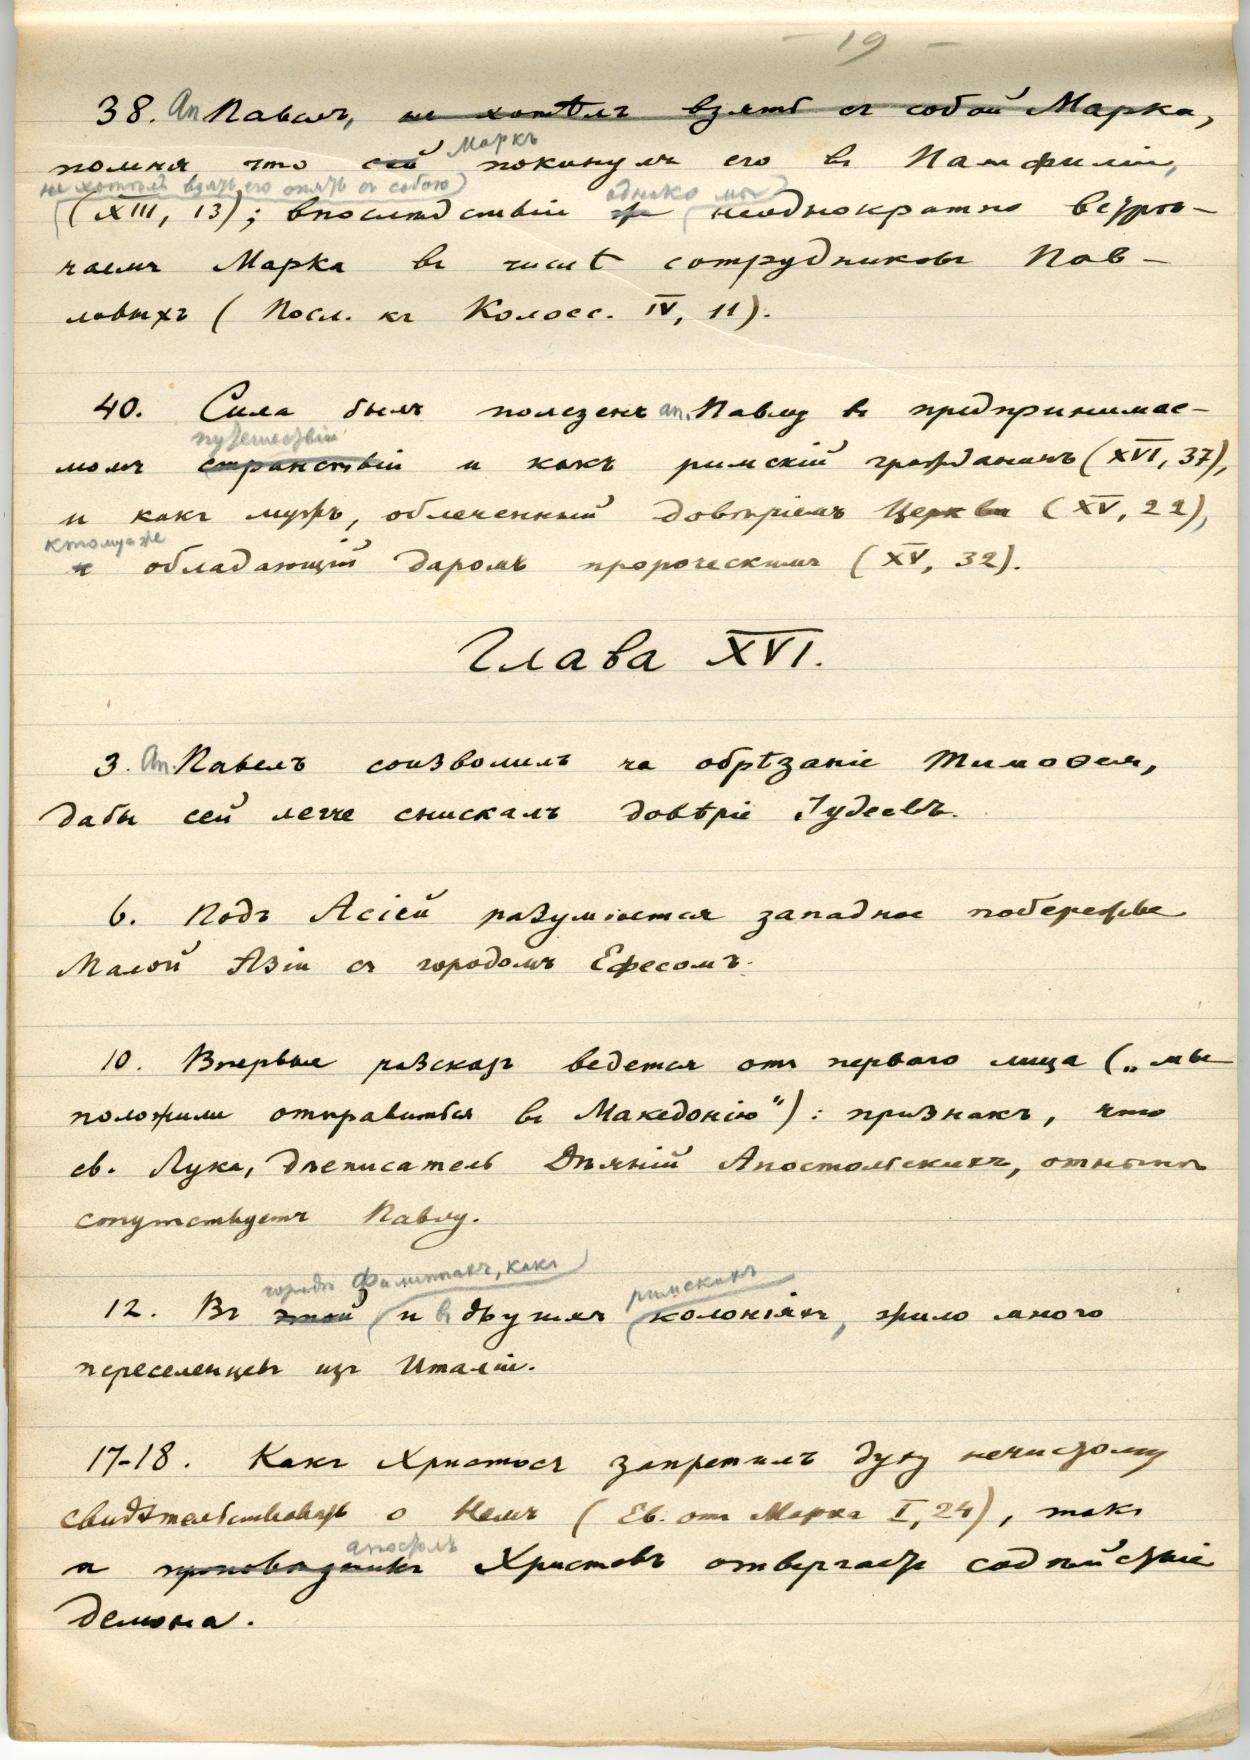 – 19 –
38. Ап. Павелъ, не хотѣлъ взять съ собой Марка,
Маркъ
помня что сей покинулъ его въ Памфиліи,
не хотѣлъ взять его опять съ собою
однако мы
(XIII, 13); впослѣдствіи же неоднократно встрѣ-
чаемъ Марка въ числѣ сотрудниковъ Пав-
ловыхъ (Посл. къ Колосс. IV, 11).
40. Сила былъ полезенъ ап. Павлу въ предпринимае-
путешествіи
момъ странствіи и какъ римскій гражданинъ (XVI, 37),
и какъ мужъ, облеченный довѣріемъ Церкви (XV, 22),
къ тому же
и обладающій даромъ пророческимъ (XV, 32).
Глава XVI.
3. Ап. Павелъ соизволилъ на обрѣзаніе Тимоѳея,
дабы сей легче снискалъ довѣріе Іудеевъ.
6. Подъ Асіей разумѣется западное побережье
Малой Азіи съ городомъ Ефесомъ.
10. Впервые разсказъ ведется отъ перваго лица („мы
положили отправиться въ Македонію“): признакъ, что
св. Лука, дѣеписатель Дѣяній Апостольскихъ, отнынѣ
сопутствуетъ Павлу.
городѣ Филиппахъ, какъ
римскихъ
12. Въ этой и въ другихъ колоніяхъ, жило много
переселенцевъ изъ Италіи.
17-18. Какъ Христосъ запретилъ духу нечистому
свидѣтельствовать о Немъ (Ев. отъ Марка I, 24), такъ
апостолъ
и проповѣдникъ Христовъ отвергаетъ содѣйствіе
демона.